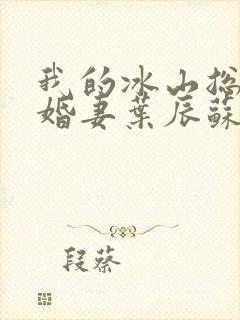 我的冰山总
婚妻葉辰蘇
段蔡